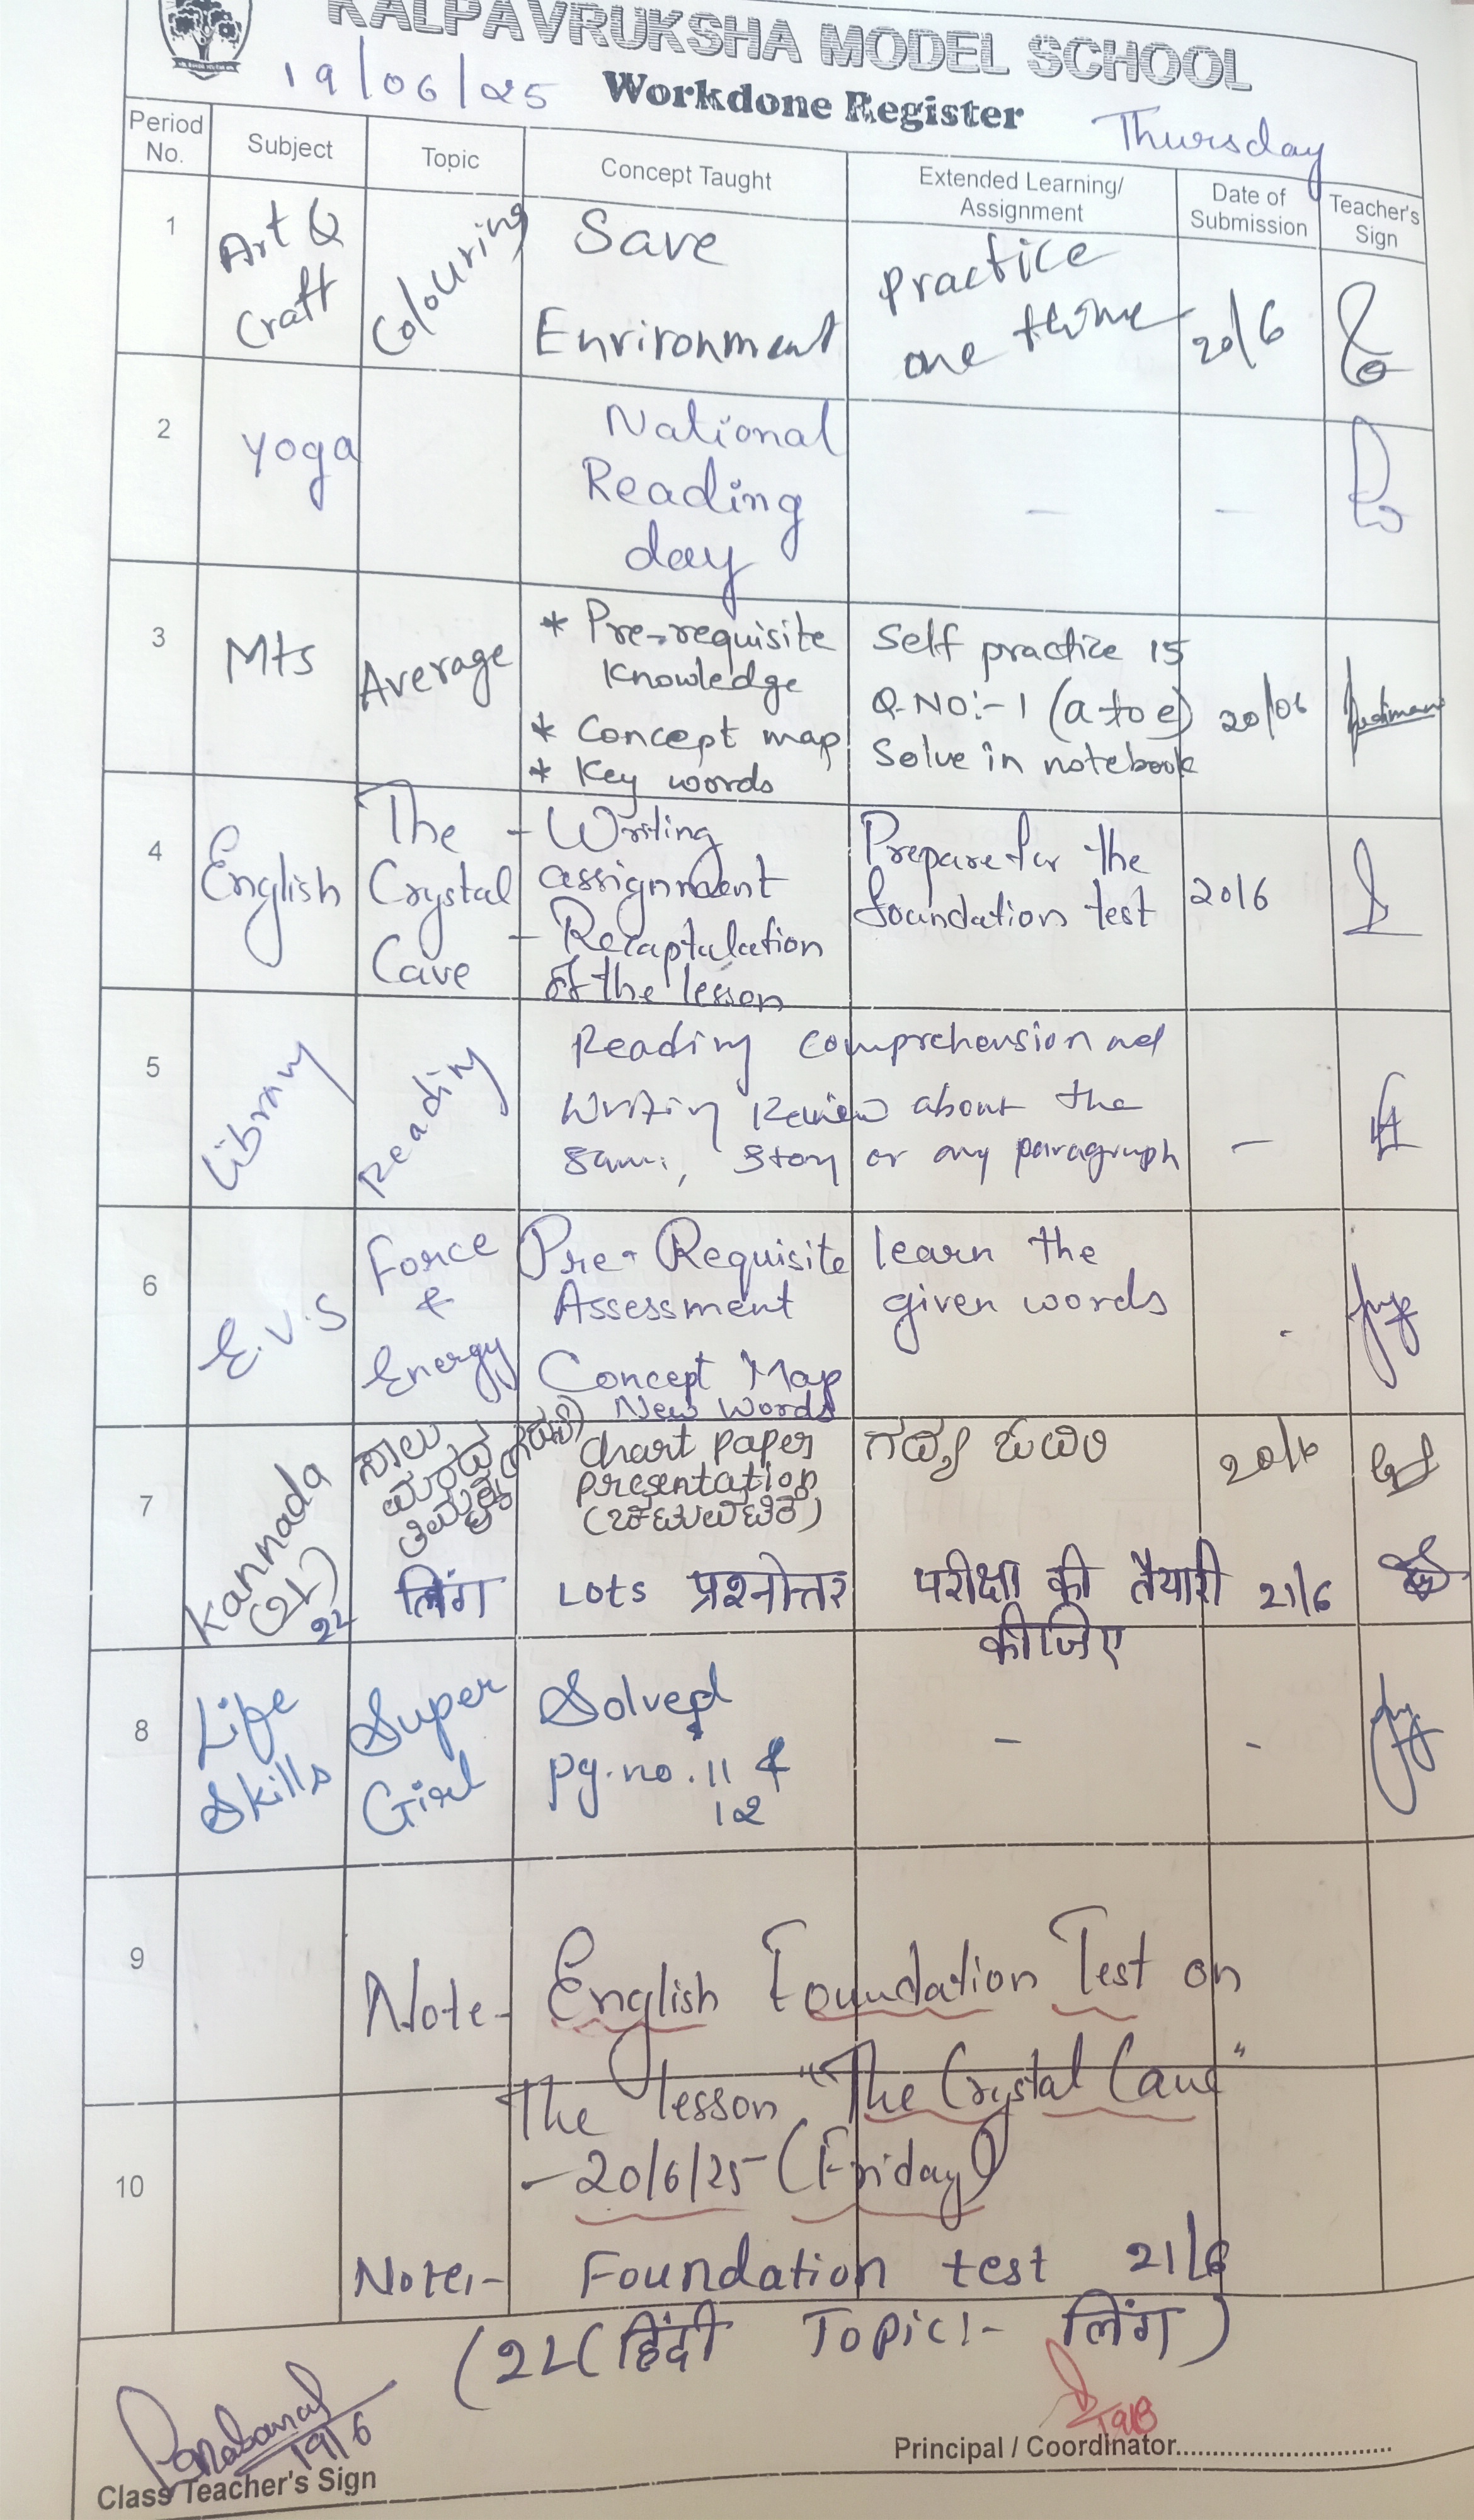 KALPAVRUKSHA MODEL SCHOOL
19/06/25 Workdone Register Thursday
Period No. Subject Topic Concept Taught Extended Learning/ Assignment Date of Submission Teacher's Sign
1 Art & Craft Colouring Save Environment practice one time 20/6
2 Yoga National Reading day - -
3 Mts Average * Pre-requisite Knowledge
* Concept map
* Key words
Self practice 15
Q.NO:-1 (a to e)
Solve in notebook
20/06
4 English The Crystal Cave
- Writing assignment
- Recaptulation of the lesson
Prepare for the
foundation test
20/6
5 Library Reading
Reading comprehension and
writing Review about the
same, story or any paragraph -
6 E.V.S Force & Energy
Pre-Requisite
Assessment
Concept Map
New Words
learn the
given words
-
7 Kannada (2L)
ಸಾಲು
ಮರದ
ತಿಮ್ಮಕ್ಕ
chart paper
presentation
(ಚಟುವಟಿಕೆ)
ಗದ್ಯ ಓದಿರಿ
20/6
2L लिंग LOTS प्रश्नोत्तर परीक्षा की तैयारी 21/6
कीजिए
8 Life Skills Super Girl
Solved
pg.no. 11 &
12
- -
9
Note- English Foundation Test on
The lesson "The Crystal Cave"
10
- 20/6/25 - (Friday)
Note:- Foundation test 21/6
(2L (हिंदी Topic:- लिंग)
19/6
Class Teacher's Sign
Principal / Coordinator..............................